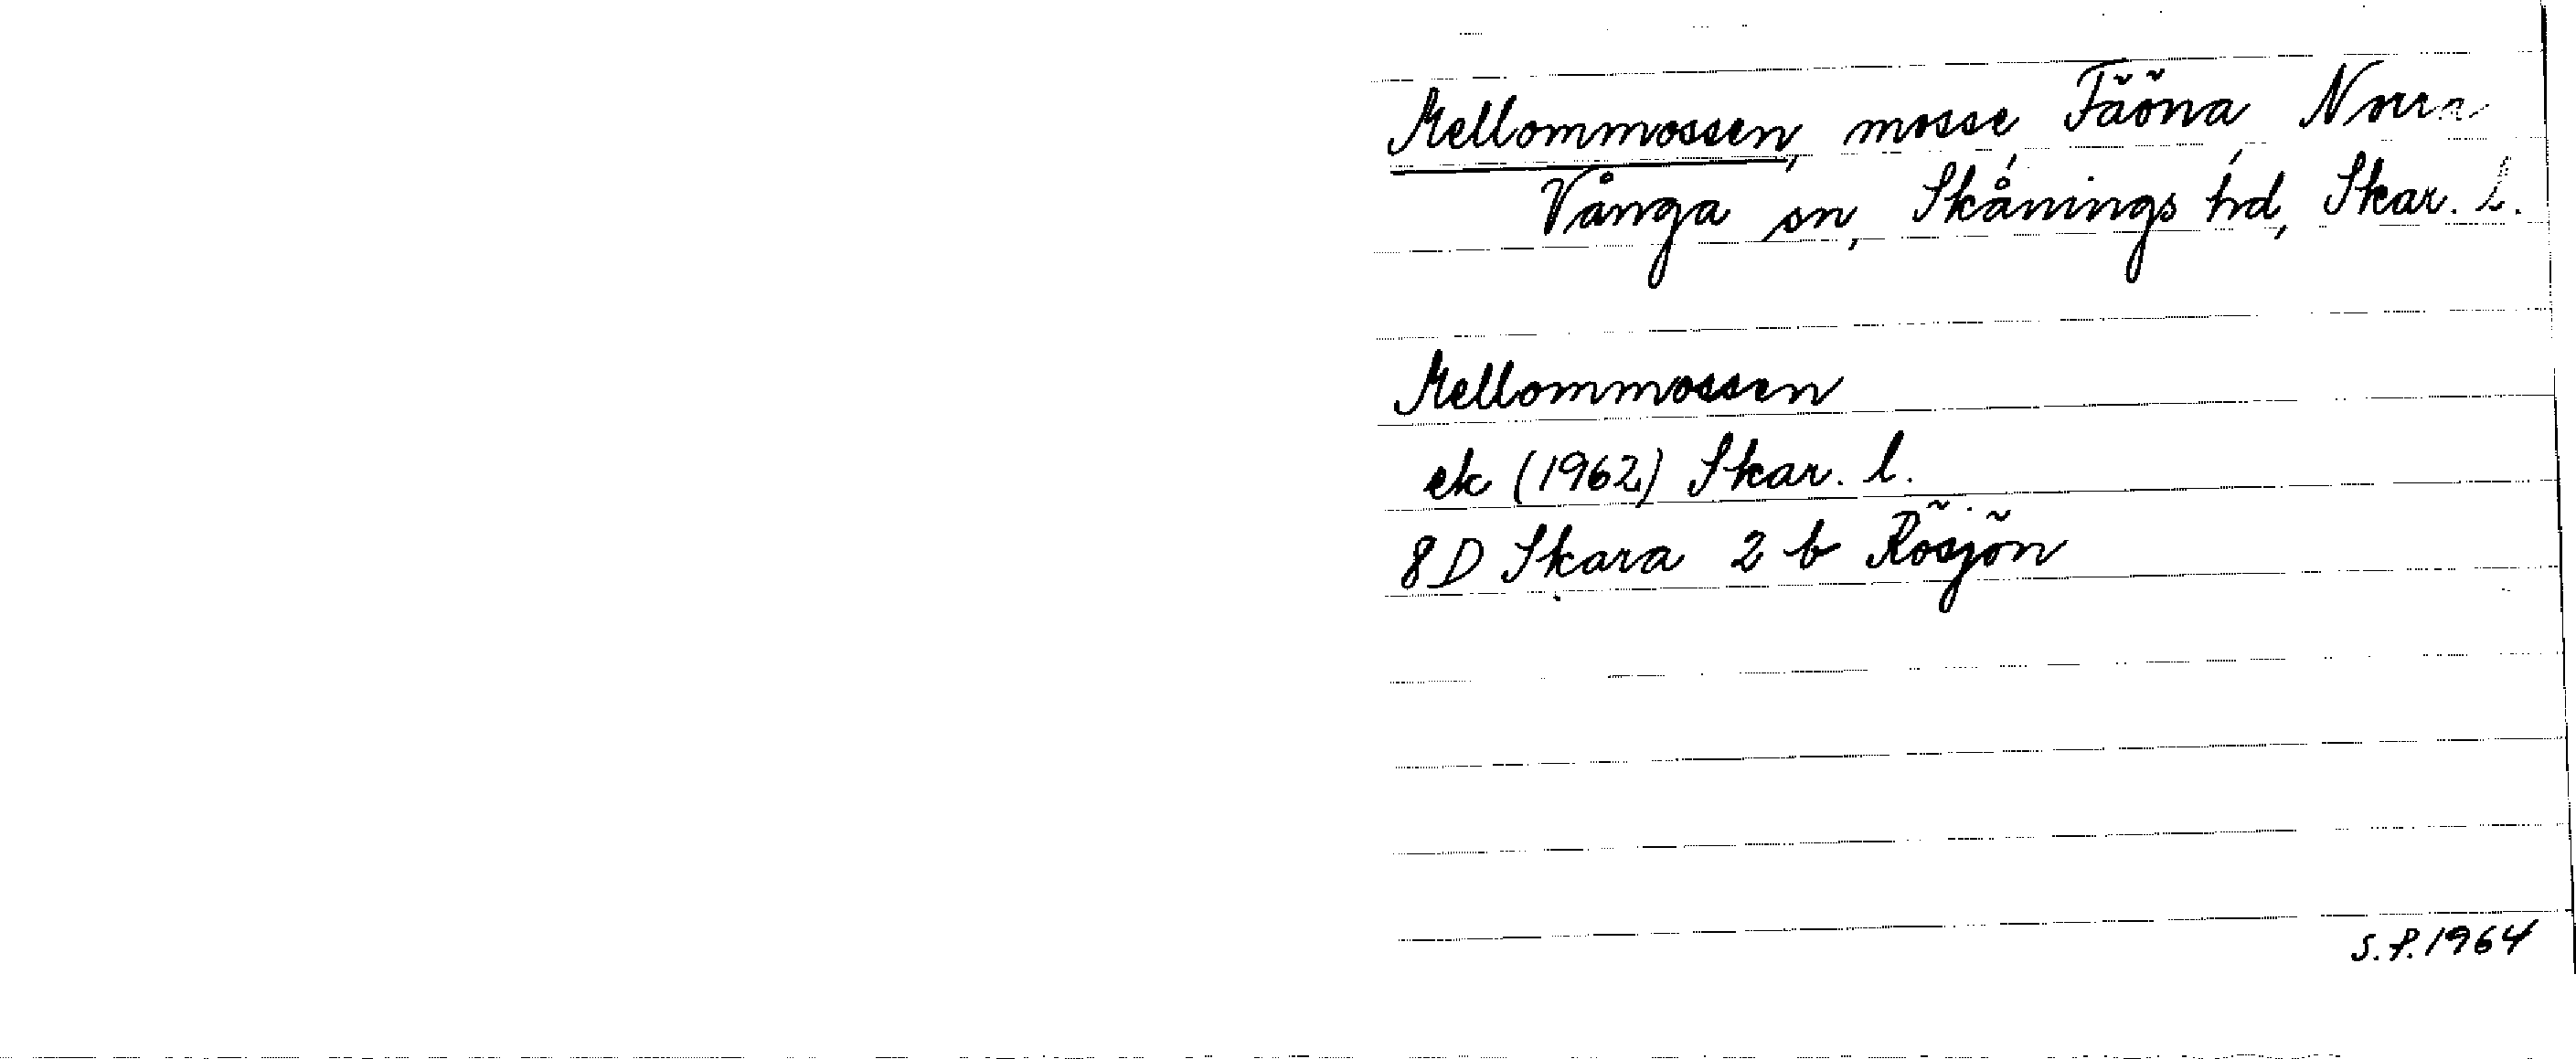 Mellommossen, mosse, Fäöna, Norra
Vånga sn, Skånings hd, Skar. l.
Mellommossen
ek (1962) Skar. l.
8 D Skara 2 b Rösjön
S.P. 1964